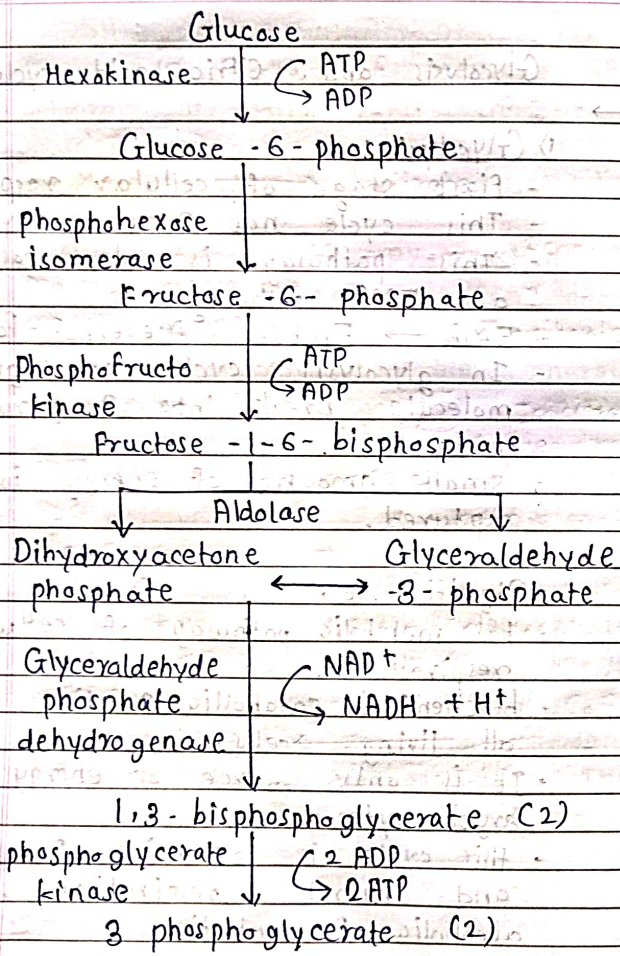 Glucose
Hexokinase
ATP
ADP
Glucose - 6 - phosphate
Phosphohexose
isomerase
Fructose - 6 - phosphate
Phosphofructo
kinase
ATP
ADP
Fructose - 1 - 6 - bisphosphate
Aldolase
Dihydroxyacetone
phosphate
Glyceraldehyde
- 3 - phosphate
Glyceraldehyde
phosphate
dehydrogenase
NAD+
NADH + H+
1,3 - bisphosphoglycerate (2)
phosphoglycerate
kinase
2 ADP
2 ATP
3 phosphoglycerate (2)